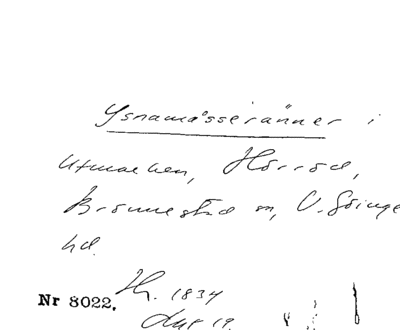 Ysnamosseränner i
Utmarken, Hörröd,
Brönnestad sn, V. Göinge
hd.
Nr 8022. Th. 1834
19.